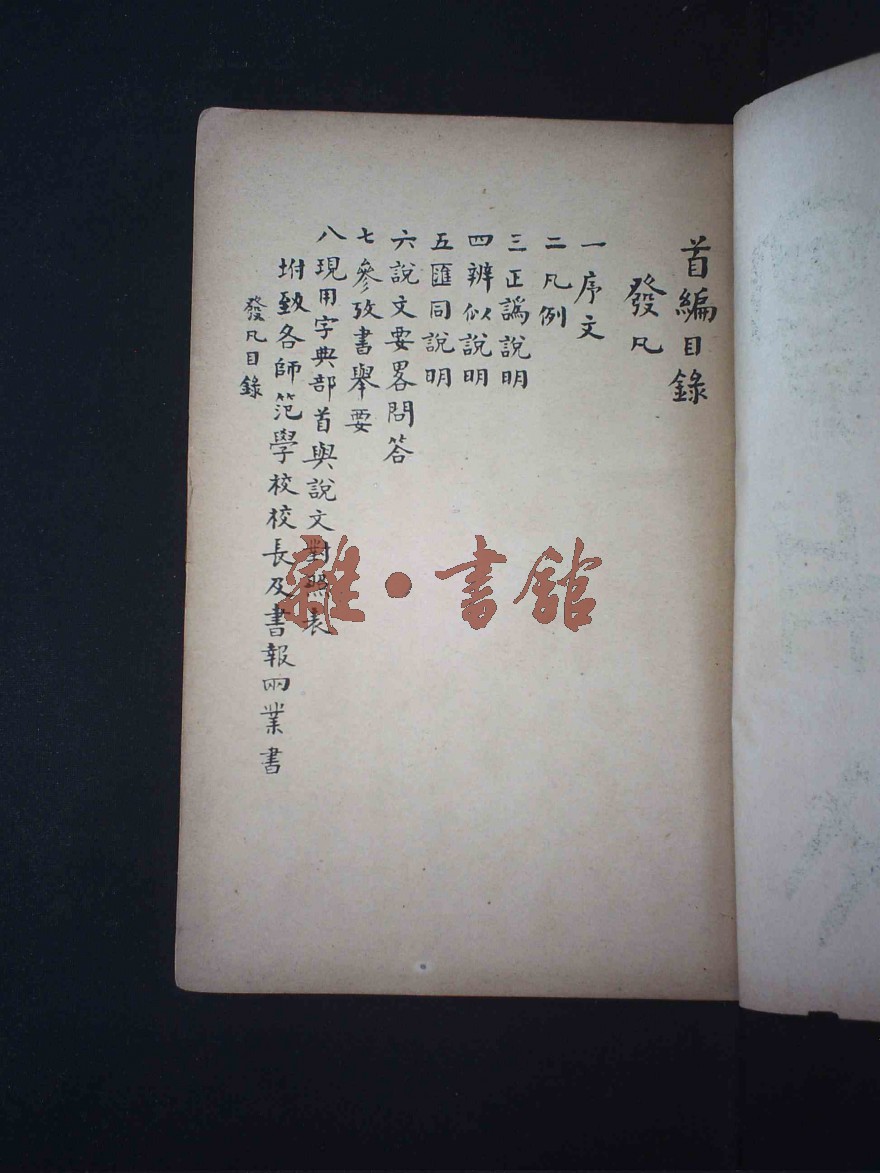 首編目錄
發凡
一序文
二凡例
三正譌說明
四辨似說明
五匯同說明
六說文要畧問答
七參攷書舉要
八現用字典部首與說文對照表
坿致各師范學校校長及書報兩業書
發凡目錄
雜·書館